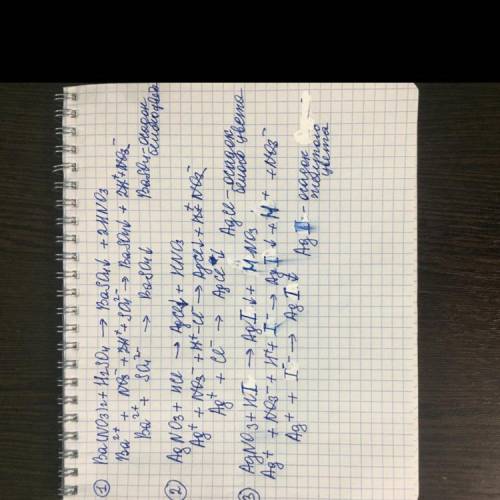 ① Ba(NO3)2 + H2SO4 → BaSO4↓ + 2HNO3
Ba²⁺ + NO3⁻ + 2H⁺ + SO4²⁻ → BaSO4↓ + 2H⁺ + NO3⁻
Ba²⁺ + SO4²⁻ → BaSO4↓ BaSO4 - осадок
белого цвета
② AgNO3 + HCl → AgCl↓ + HNO3
Ag⁺ + NO3⁻ + H⁺ - Cl⁻ → AgCl↓ + H⁺ + NO3⁻
Ag⁺ + Cl⁻ → AgCl↓ AgCl - осадок
белого цвета
③ AgNO3 + HI → AgI↓ + HNO3
Ag⁺ + NO3⁻ + H⁺ + I⁻ → AgI↓ + H⁺ + NO3⁻
Ag⁺ + I⁻ → AgI↓ AgI - осадок
желтого
цвета